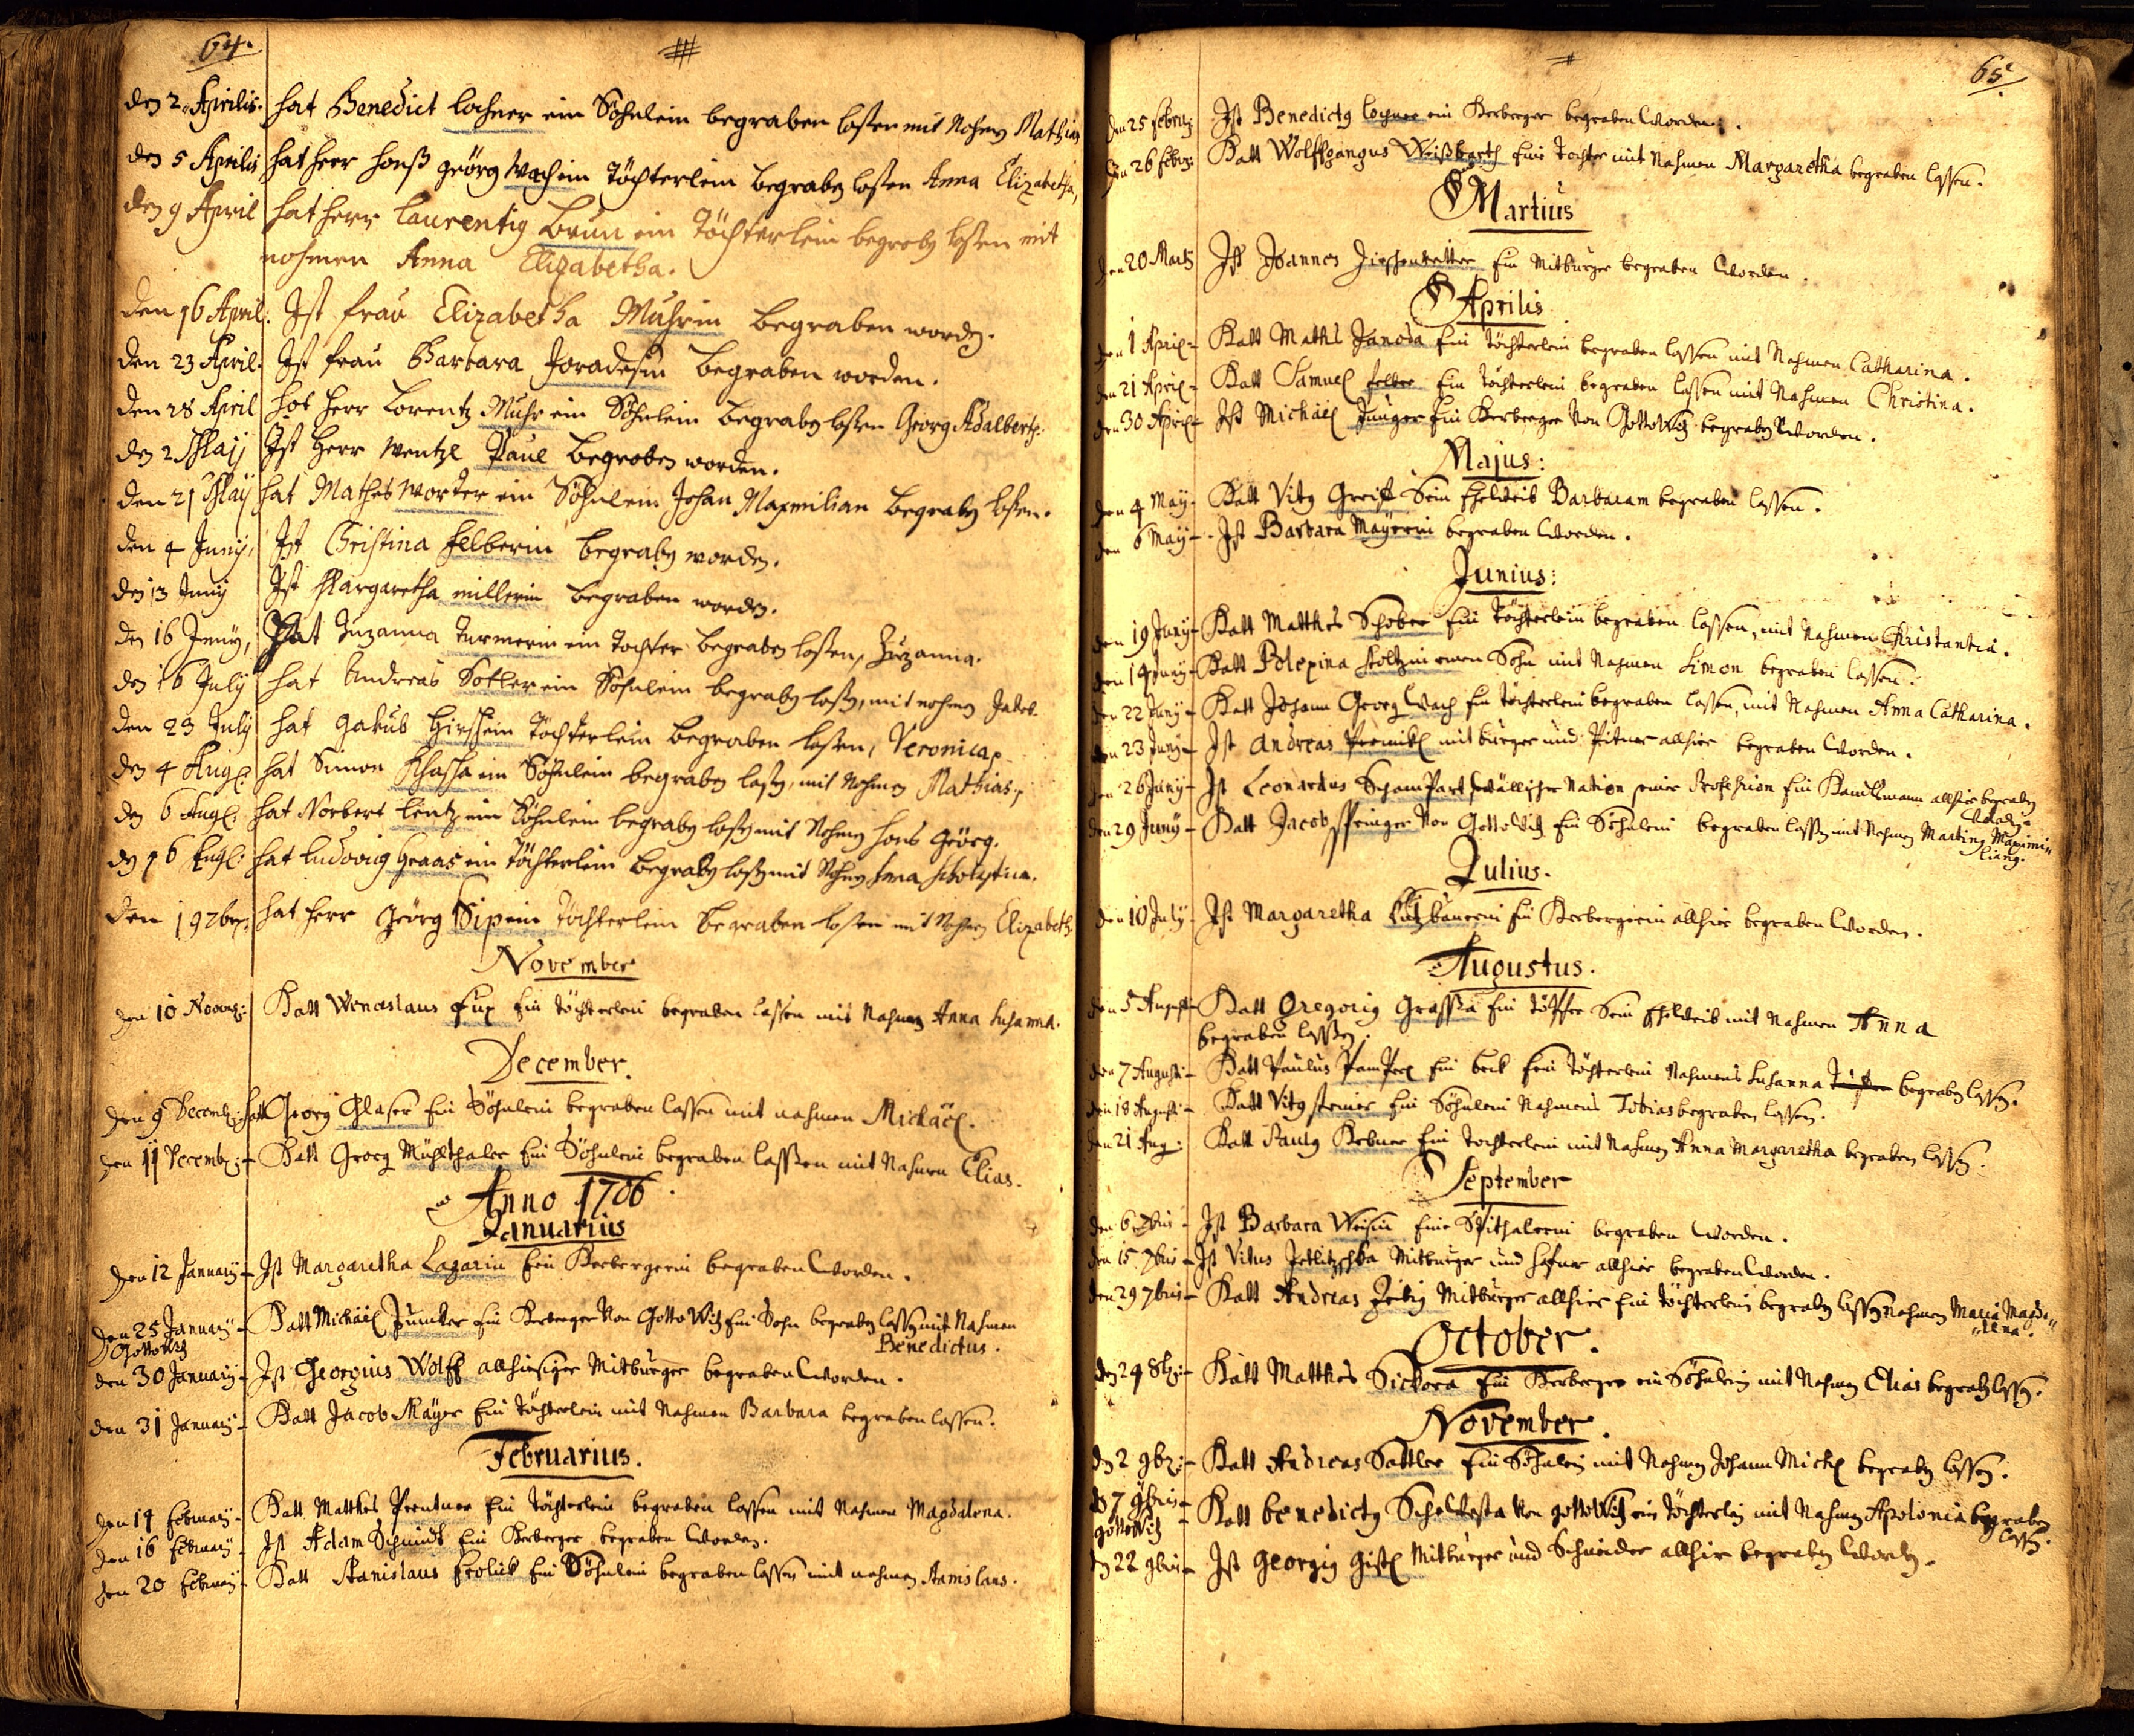 64.
den 2. Aprilis. hat Benedict lochner ein Söhnlein begraben loßen mit Nohmen Mathias
den 5 Aprilis hat herr honß Geörg Wach ein Töchterlein begraben loßen Anna Elizabetha,
den 9 April hat herr Laurentig Brun ein Töchterlein begraben loßen mit
nohmen Anna Elizabetha.
den 16 April. Ist frau Elizabetha Muhrin begraben worden.
den 23 April. Ist frau Barbara Joradesin begraben worden.
den 28 April hot herr Lorentz Muhr ein Söhnlein begraben loßen Georg Adalbert
den 2 May Ist Herr Wentzl Paul begroben worden.
den 21 May hat Mathes Worter ein Söhnlein Johan Maxmilian begraben loßen.
den 4 Juny, Ist Christina Felberin begraben worden.
den 13 Juny Ist Margaretha millerin begraben worden.
den 16 Juny, Hat Zuzanna Turmerin ein Tochter begraben loßen, Zuzanna.
den 16 July hat Andreas Sotler ein Söhnlein begraben loßen, mit nohmen Jakob
den 23 July hat Jakub Hirsch ein Töchterlein begraben loßen, Veronica
den 4 Aug: hat Simon Khascha ein Söhnlein begraben loßen, mit Nohmen Mathias,
den 6 Aug: hat Norbert Lentz ein Söhnlein begraben loßen mit Nohmen hons Geörg.
den 16 Aug: hat Ludovig Graas ein Töchterlein begraben loßen mit Nohmen Anna Scholastica.
den 19 7ber: hat herr Geörg Sip ein Töchterlein begraben loßen mit Nohmen Elizabeth.
November
den 10 Novemb: Hatt Wenceslaus Fux Ein Töchterlein begraben lassen mit Nahmen Anna Susanna.
December.
den 9 Decemb: hatt Georg Glaser Ein Söhnlein begraben lassen mit nahmen Michäel.
den 11 Decemb: Hatt Georg Mühlthaler Ein Söhnlein begraben lassen mit Nahmen Elias.
Anno 1706.
Januarius
den 12 January Ist Margaretha Lazarin Ein Herbergerin begraben worden.
den 25 January Hatt Michäel Junker Ein Herberger von Gottowitz Ein Sohn begraben lassen mit Nahmen
Gottowitz Benedictus.
den 30 January Ist Georgius Wolff allhiesiger Mitburger begraben worden.
den 31 January Hatt Jacob Mayer Ein Töchterlein mit Nahmen Barbara begraben lassen.
Februarius.
den 14 February Hatt Matthes Prentner Ein Töchterlein begraben lassen mit Nahmen Magdalena.
den 16 February Ist Adam Schmidt Ein Herberger begraben worden.
den 20 February Hatt Stanislaus Frolick Ein Söhnlein begraben lassen mit nahmen Stanislaus.
65.
den 25 Febru: Ist Benedictg lochner ein Herberger begraben worden.
den 26 Febr: Hatt Wolffgangus Weißbarth Ein Tochter mit Nahmen Margaretha begraben lassen.
Martius
den 20 Marti Ist Joannes Zieschenketter Ein Mitburger begraben worden.
Aprilis
den 1 April Hatt Mathes Janoda Ein Töchterlein begraben lassen mit Nahmen Catharina.
den 21 April Hatt Samuel Felber Ein Töchterlein begraben lassen mit Nahmen Christina.
den 30 April Ist Michäel Junger Ein Herberger von Gottowitz begraben worden.
Majus:
den 4 May Hatt Vitg Greiff Sein Eheweib Barbaram begraben lassen.
den 6 May Ist Barbara Mayerin begraben worden.
Junius:
den 19 Juny Hatt Matthes Schober Ein Töchterlein begraben lassen, mit Nahmen Christantia.
den 14 Juny Hatt Polexina Holtzin einen Sohn mit Nahmen Simon begraben lassen.
den 22 Juny Hatt Johann Georg Wach Ein Töchterlein begraben lassen, mit Nahmen Anna Catharina.
den 23 Juny Ist Andreas Premikl mitburger und Pitner allhier begraben worden.
den 26 Juny Ist Leonardus Schampart Wällischer Nation seiner Profession Ein Handlsmann allhier begraben
worden.
den 29 Juny Hatt Jacob Springer von Gottowitz Ein Söhnlein begraben lassen mit Nahmen Marting Maximi
liang.
Julius.
den 10 July Ist Margaretha Kutzbauerin Ein Herbergerin allhier begraben worden.
Augustus.
den 5 August Hatt Gregorig Grassta Ein Töpfer Sein Eheweib mit Nahmen Anna
begraben lassen.
den 7 Augusti Hatt Paulus Pamperl Ein beck Ein Töchterlein Nahmens Susanna begraben lassen.
den 18 Augusti Hatt Vitg Steiner Ein Söhnlein Nahmens Tobias begraben lassen.
den 21 Aug: Hatt Paulg Krbner Ein Tochterlein mit Nahmen Anna Margaretha begraben lassen.
September
den 6 7bris Ist Barbara Weisin Eine Spithalerin begraben worden.
den 15 7bris Ist Vitus Jetlitzschka Mitburger und Hafner allhier begraben worden.
den 29 7bris Hatt Andreas Zebig Mitburger allhier Ein Töchterlein begraben lassen Nahmen Maria Magda
lena.
October.
den 24 8b: Hatt Matthes Sickora Ein Herberger ein Söhnlein mit Nahmen Elias begraben lassen.
November.
den 2 9br: Hatt Andreas Sattler Ein Söhnlein mit Nahmen Johann Michl begraben lassen.
den 7 9bris Hatt benedictg Scheluesta von gottowitz ein Töchterlein mit Nahmen Apolonia begraben
gottowitz lassen.
den 22 9bris Ist Georgig Gistl Mitburger und Schneider allhier begraben worden.